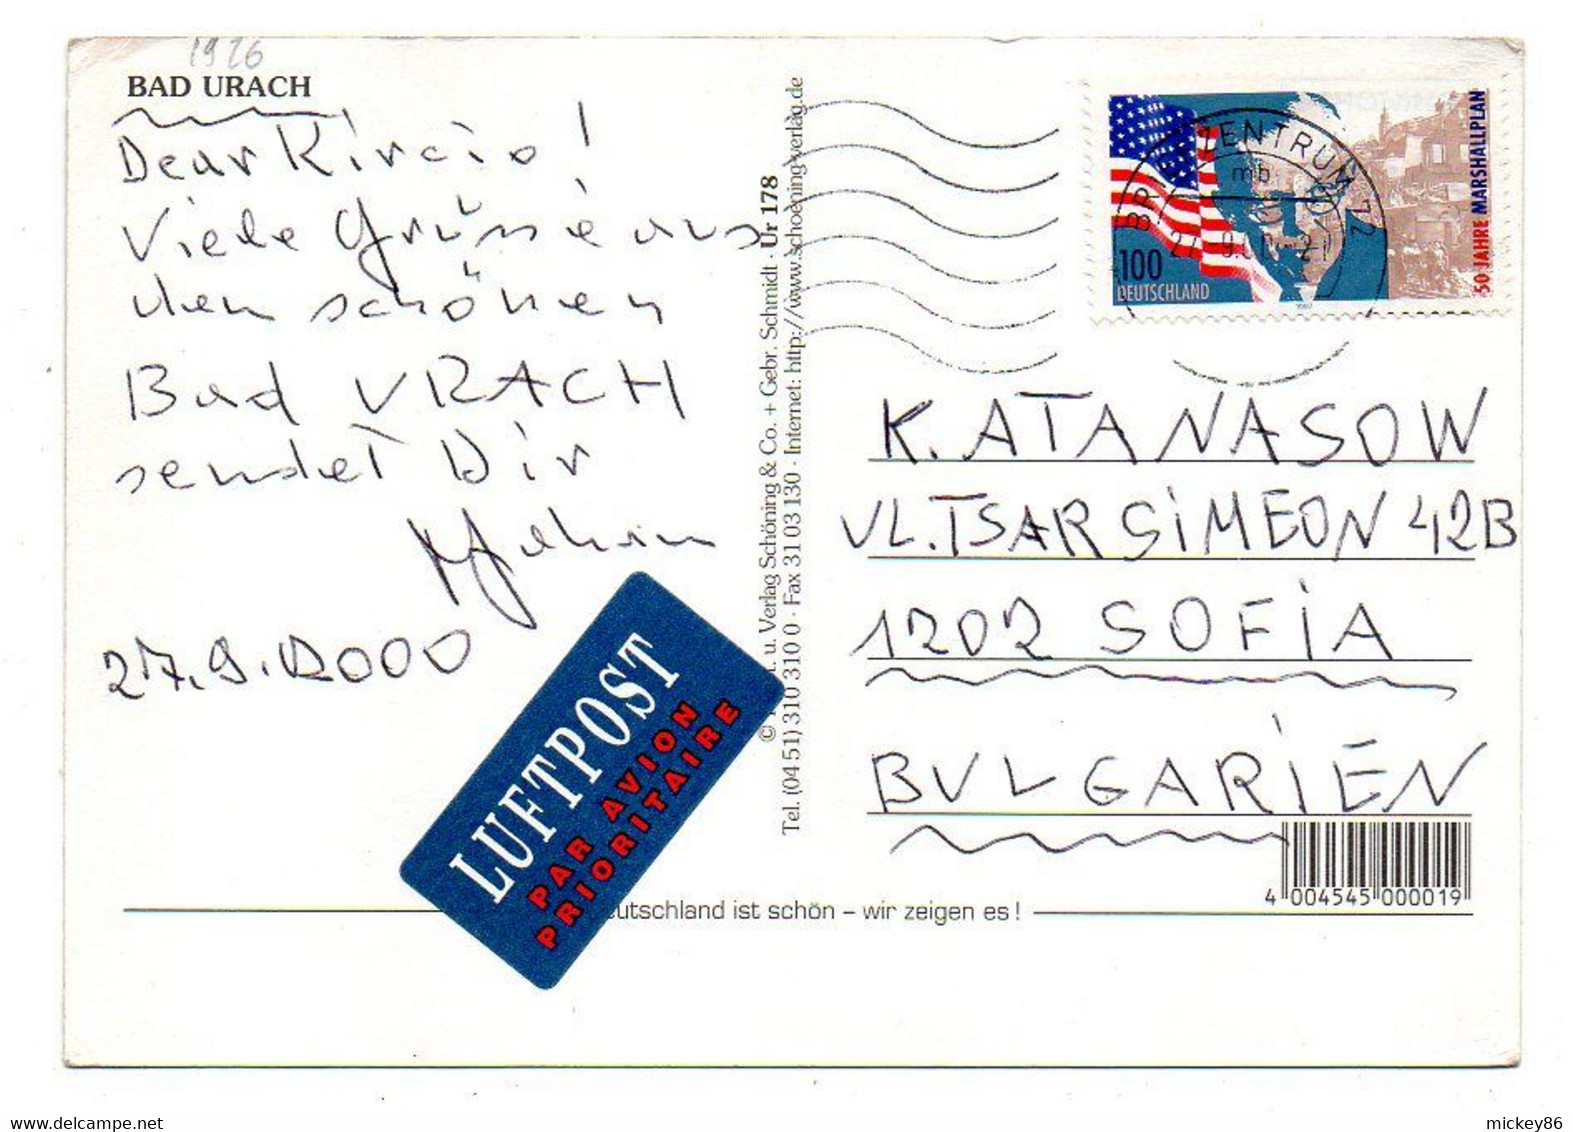 1926
BAD URACH
Dear Kircio!
Viele Grüsse aus
dem schönen
Bad URACH
sendet Dir
27.9.2000
LUFTPOST
PAR AVION
PRIORITAIRE
u. Verlag Schöning & Co. + Gebr. Schmidt · Ur 178
Tel. (04 51) 310 310 0 · Fax 31 03 130 · Internet: http://www.schoening-verlag.de
BRIEFZENTRUM 72
mb
100
DEUTSCHLAND
50 JAHRE MARSHALLPLAN
1997
K. ATANASOW
UL. TSAR SIMEON 42B
1202 SOFIA
BULGARIEN
4 004545 000019
eutschland ist schön – wir zeigen es!
mickey86